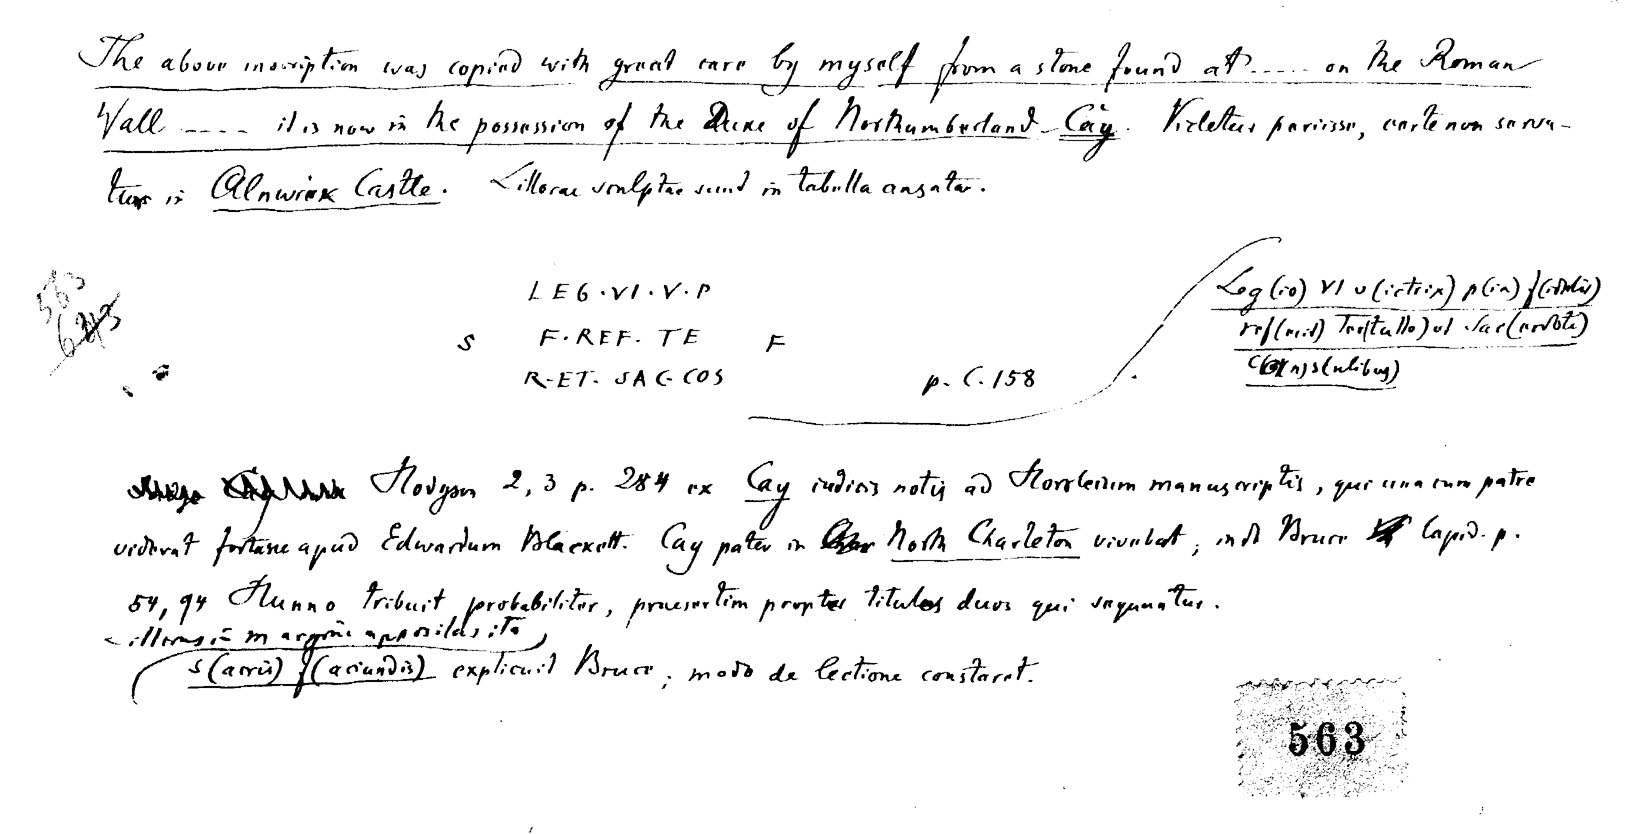 The above inscription was copied with great care by myself from a stone found at ..... on the Roman
Wall .... it is now in the possession of the Duke of Northumberland Cay. Videtur periisse, certe non serva-
tur in Alnwick Castle. Litterae sculptae sunt in tabella ansata.
563
643
LEG·VI·V·P
S F·REF·TE F
R·ET·SAC·COS
p. C. 158
Leg(io) VI v(ictrix) p(ia) f(idelis)
ref(ecit) Ter(tullo) et Sac(erdoti)
co(n)s(ulibus)
Hodgson 2, 3 p. 284 ex Cay iudicis notis ad Horsleium manuscriptis, qui una cum patre
viderat fortasse apud Edwardum Blackett. Cay pater in North Charleton vivebat; inde Bruce Lapid. p.
54, 94 Hunno tribuit probabiliter, praesertim propter titulos duos qui sequuntur.
litteras in margine appositas ita
s(acris) f(aciundis) explicuit Bruce; modo de lectione constaret.
563